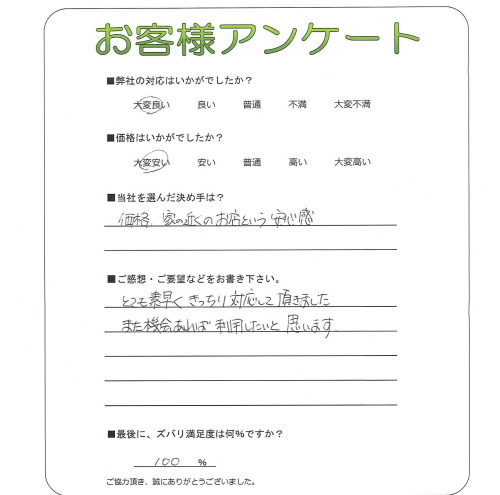 お客様アンケート
■弊社の対応はいかがでしたか？
大変良い 良い 普通 不満 大変不満
■価格はいかがでしたか？
大変安い 安い 普通 高い 大変高い
■当社を選んだ決め手は？
価格、家の近くのお店という安心感
■ご感想・ご要望などをお書き下さい。
とても素早くきっちり対応して頂きました
また機会あれば利用したいと思います。
■最後に、ズバリ満足度は何％ですか？
100 %
ご協力頂き、誠にありがとうございました。